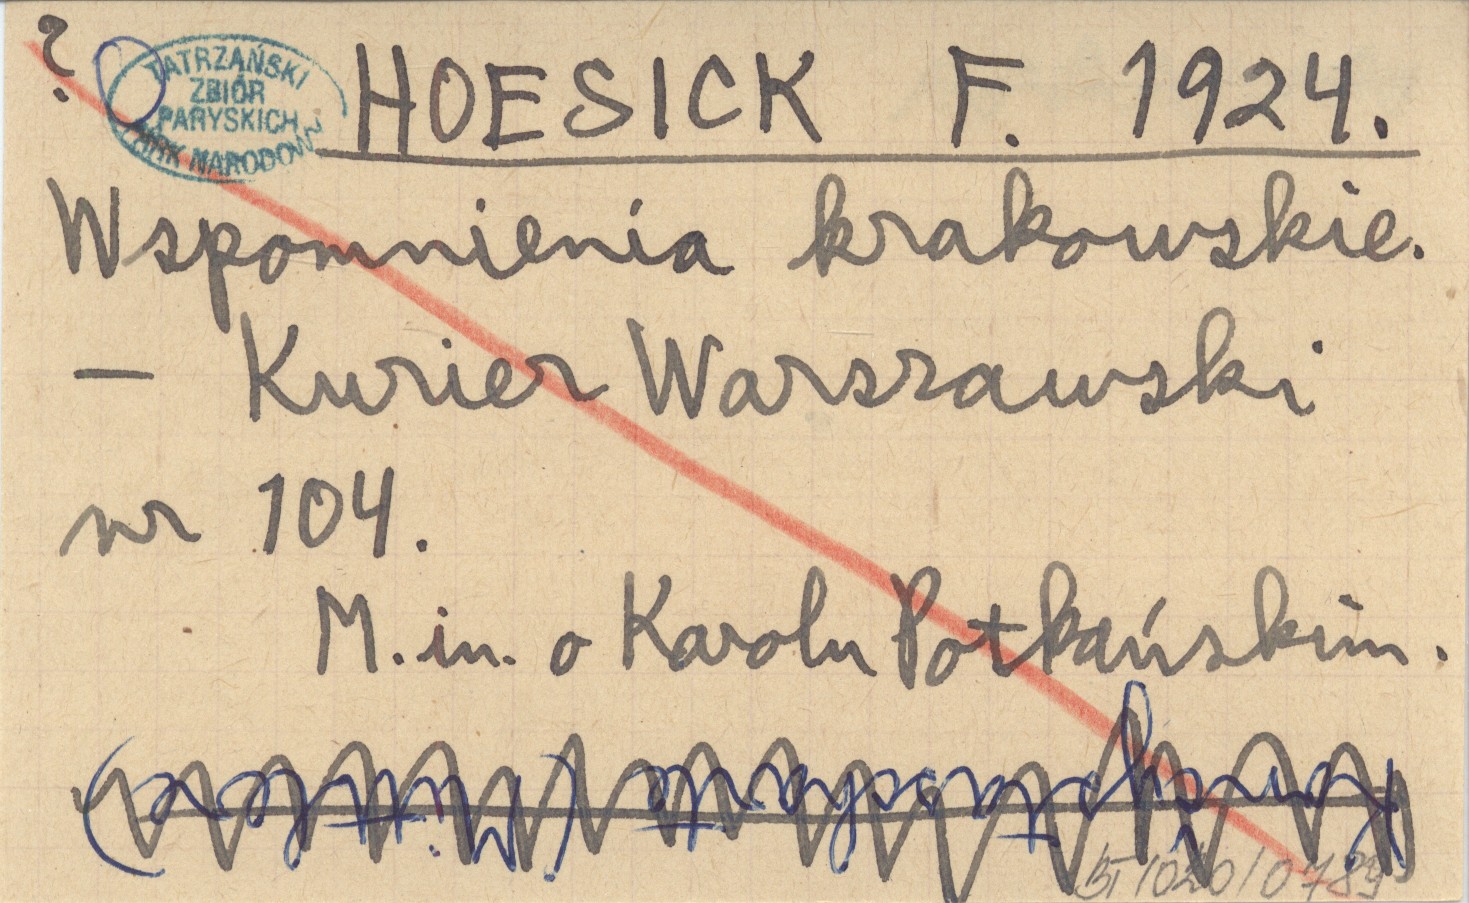 ?
TATRZAŃSKI
ZBIÓR
PARYSKICH
PARK NARODOWY
HOESICK F. 1924.
Wspomnienia krakowskie.
— Kurier Warszawski
nr 104.
M. in. o Karolu Potkańskim.
BT/020/0789